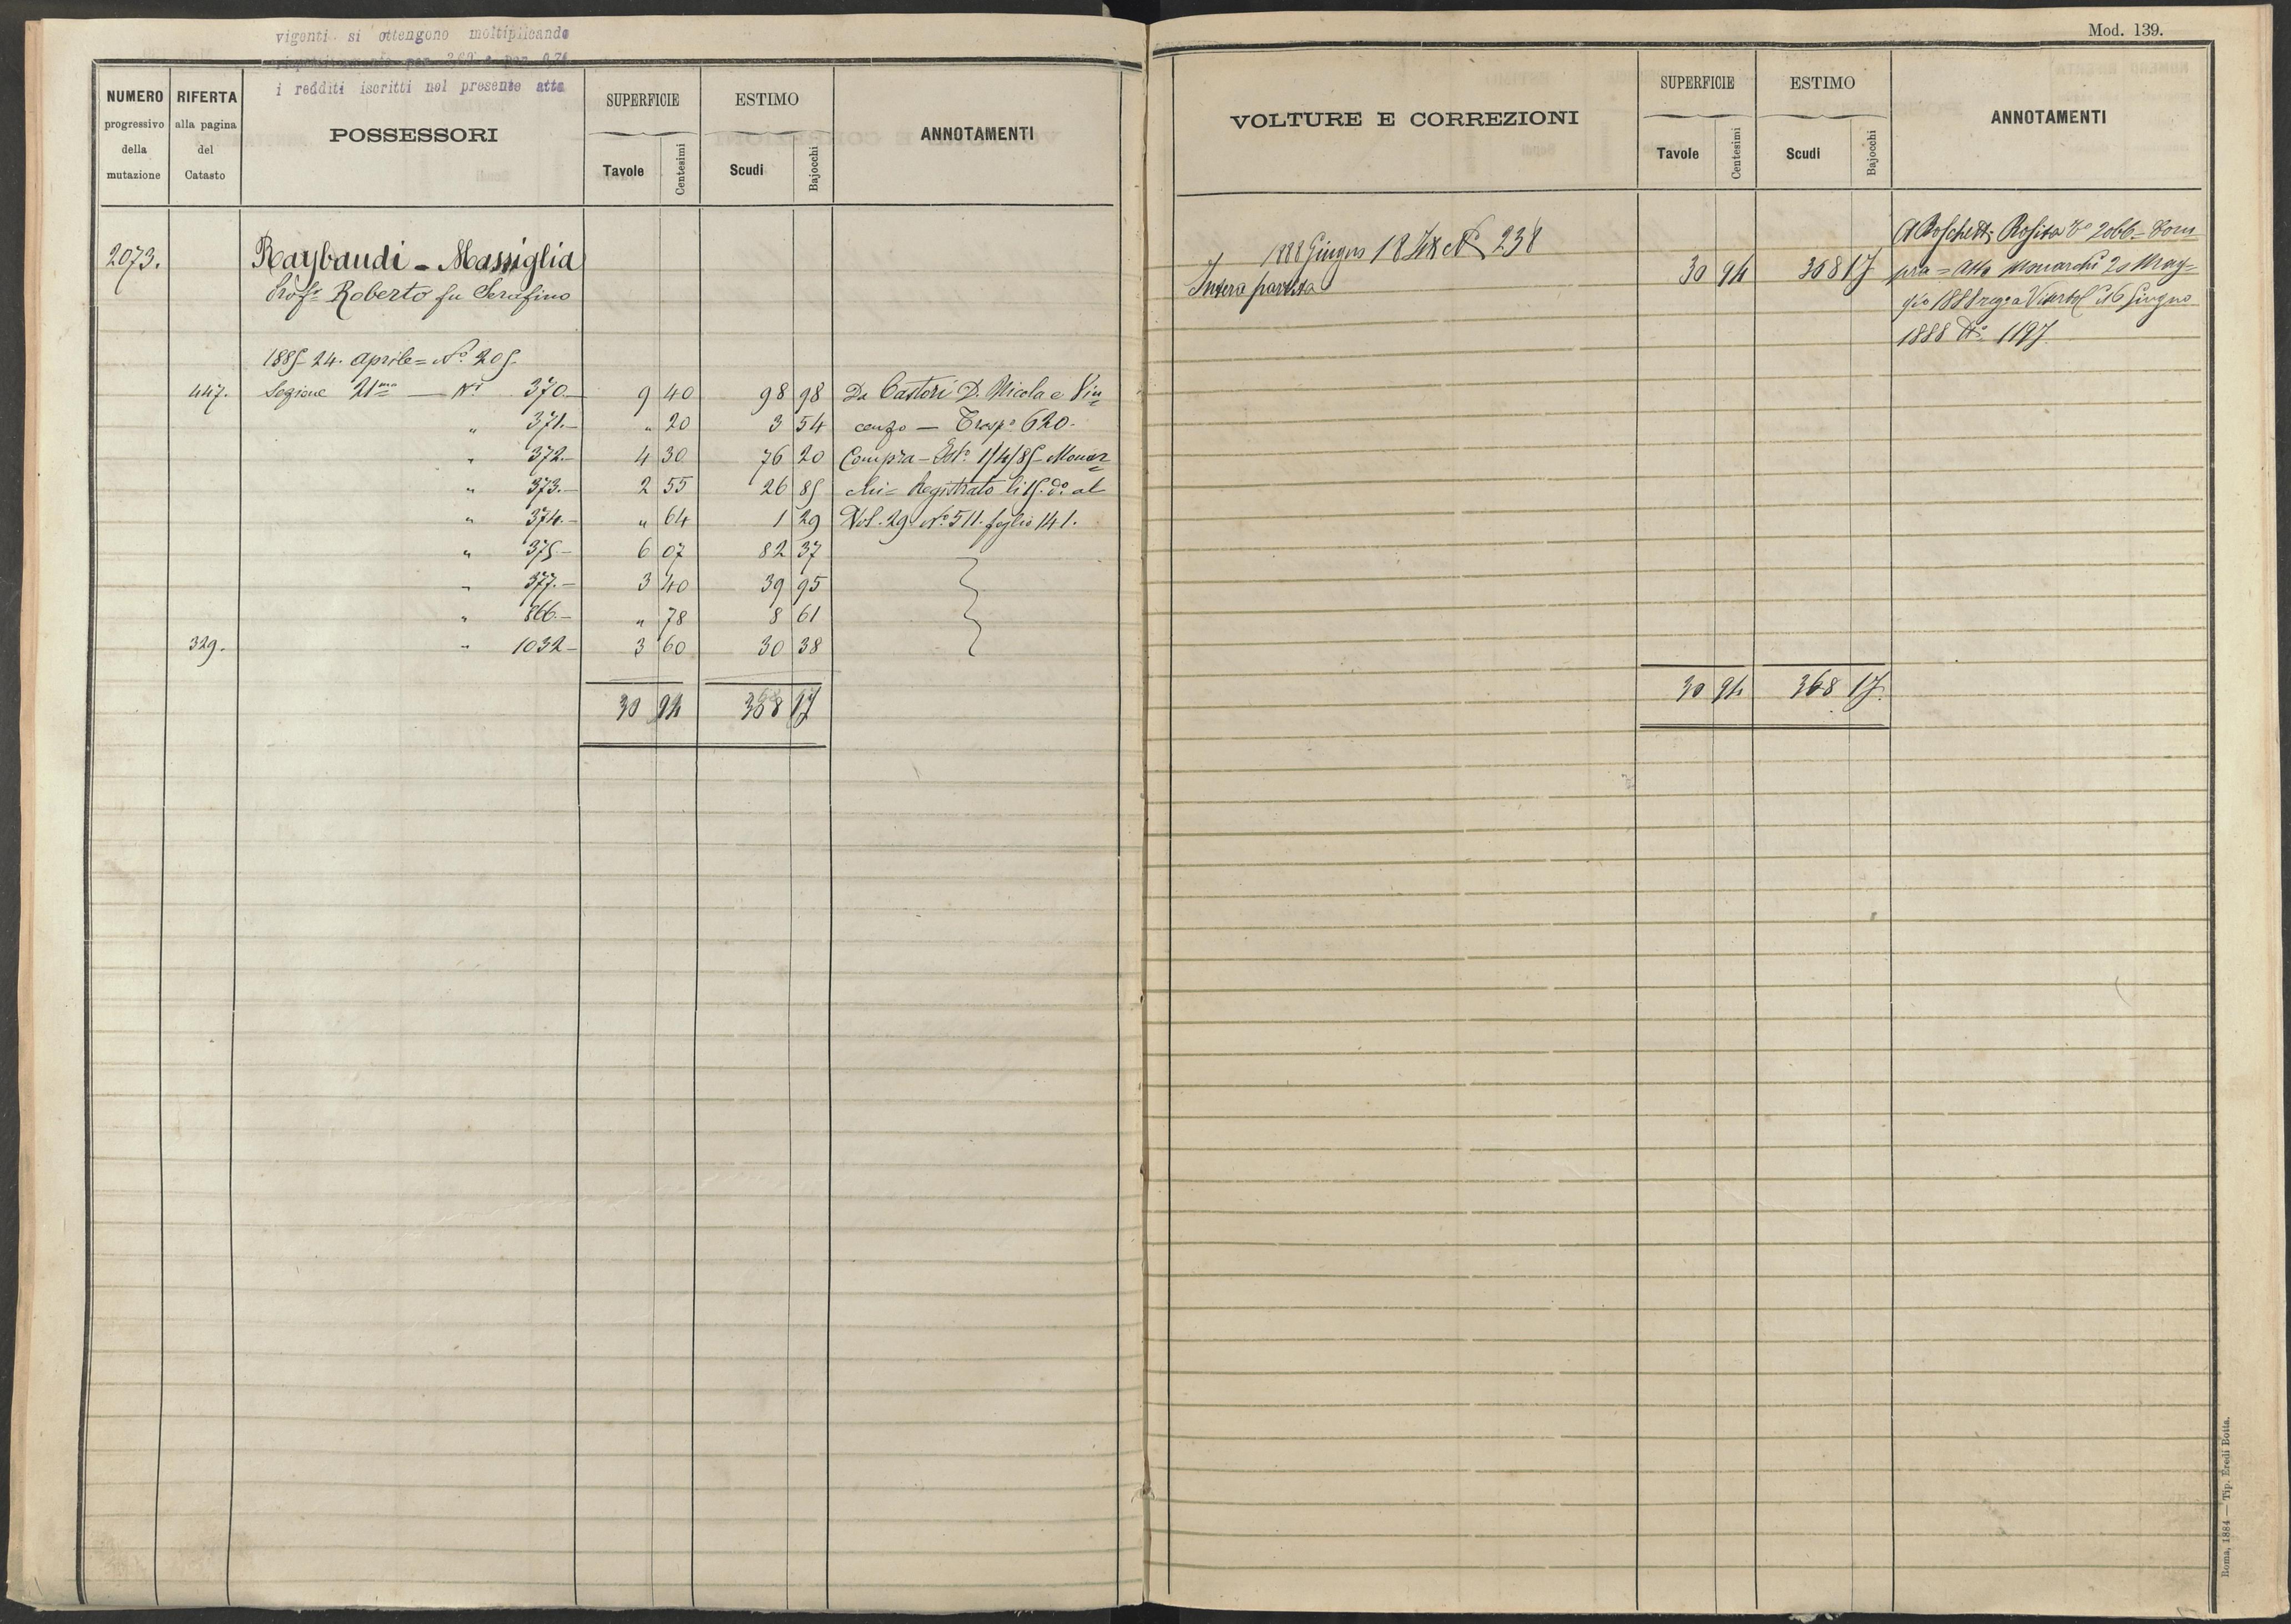 vigenti si ottengono moltiplicando
i redditi iscritti nel presente atto
NUMERO progressivo della mutazione
RIFERTA alla pagina del Catasto
POSSESSORI
SUPERFICIE
Tavole Centesimi
ESTIMO
Scudi Bajocchi
ANNOTAMENTI
2073. Raybaudi - Massiglia
Prof.r Roberto fu Serafino
1885 24. Aprile = N.o 205.
447. Sezione 21ma — N.i 370.— 9 40 98 98 Da Castori D. Nicola e Vin=
" 371.— " 20 3 54 cenzo — Trasp.o 620.
" 372.— 4 30 76 20 Compra — Ist.o 1/4/85 — Monar=
" 373.— 2 55 26 85 chi = Registrato li 15. d.o al
" 374.— " 64 1 29 Vol. 29 N.o 511. foglio 141.
" 375— 6 07 82 37
" 377.— 3 40 39 95
" 866.— " 78 8 61
329. " 1032— 3 60 30 38
30 94 368 17
Mod. 139.
VOLTURE E CORREZIONI
SUPERFICIE
Tavole Centesimi
ESTIMO
Scudi Bajocchi
ANNOTAMENTI
1888 Giugno 18 N. 238
Intera partita 30 94 368 17
A Boschetti Rosina 2066 - Com
pra = Atto Monarchi 20 Mag=
gio 1888 reg.o a Viterbo li 16 Giugno
1888 N.o 1197.
30 94 368 17.
Roma, 1884 — Tip. Eredi Botta.